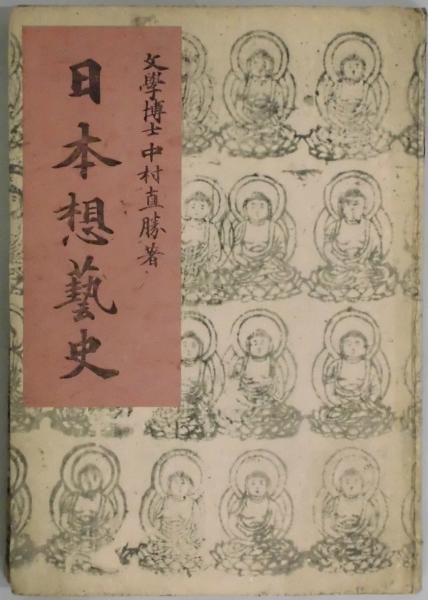 文學博士中村直勝著
日本想藝史